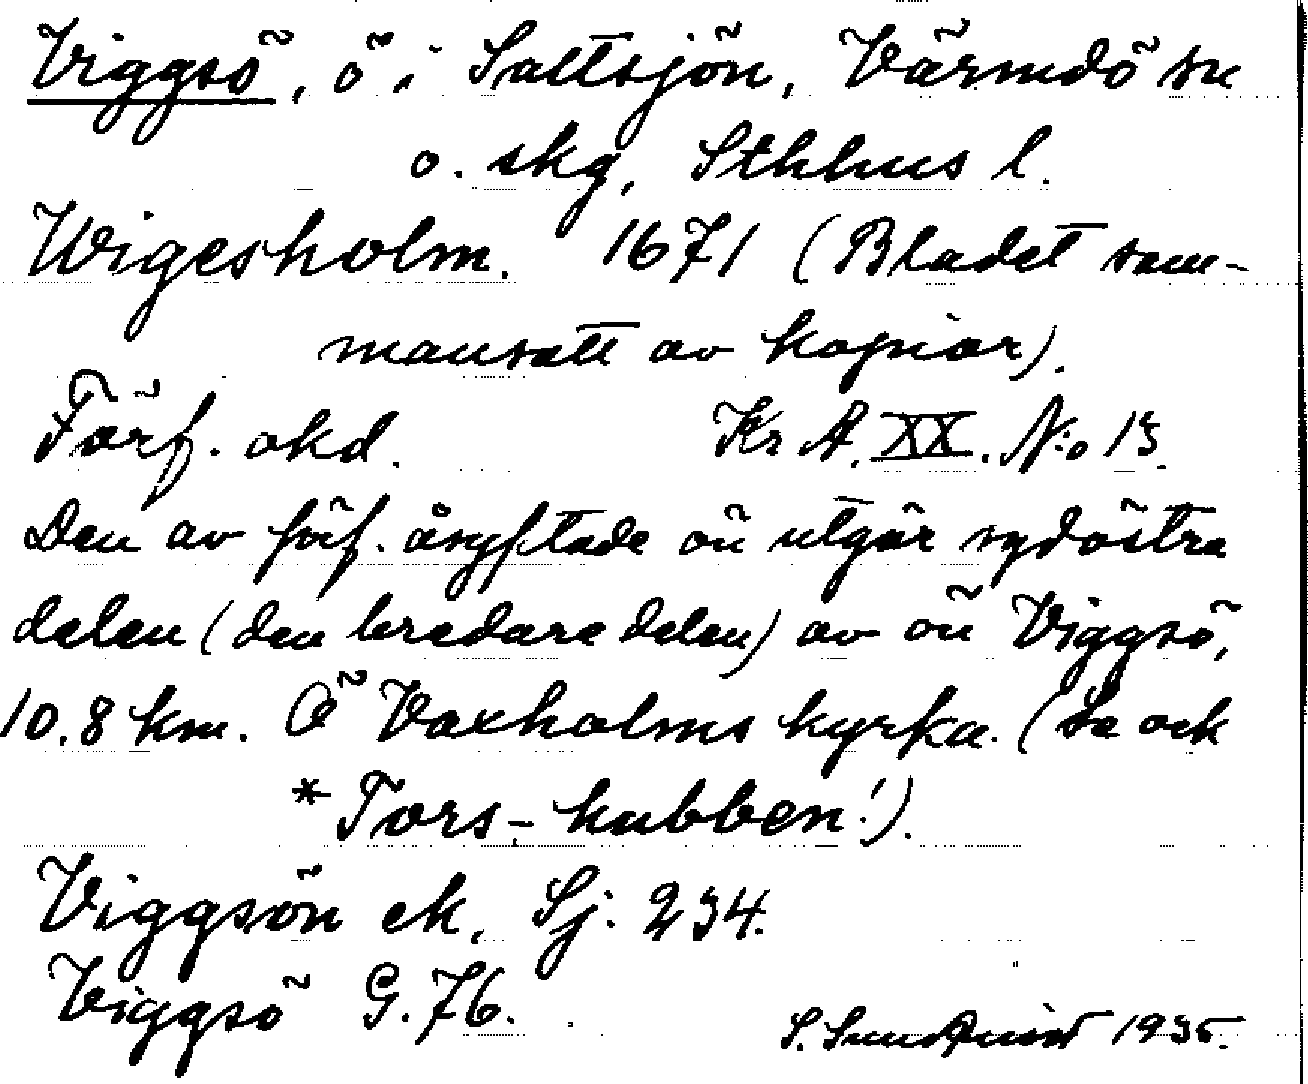 Viggsö, ö i Saltsjön, Värmdö sn
o. skg, Sthlms l.
Wigesholm. 1671 (Bladet sam-
mansatt av kopior).
Förf. okd. Kr A. XX. N:o 13.
Den av förf. åsyftade ön utgör sydöstra
delen (den bredare delen) av ön Viggsö,
10.8 km. Ö Vaxholms kyrka. (Se ock
*Tors-kubben!).
Viggsön ek, Sj. 234.
Viggsö G. 76.
S. Sundquist 1935.